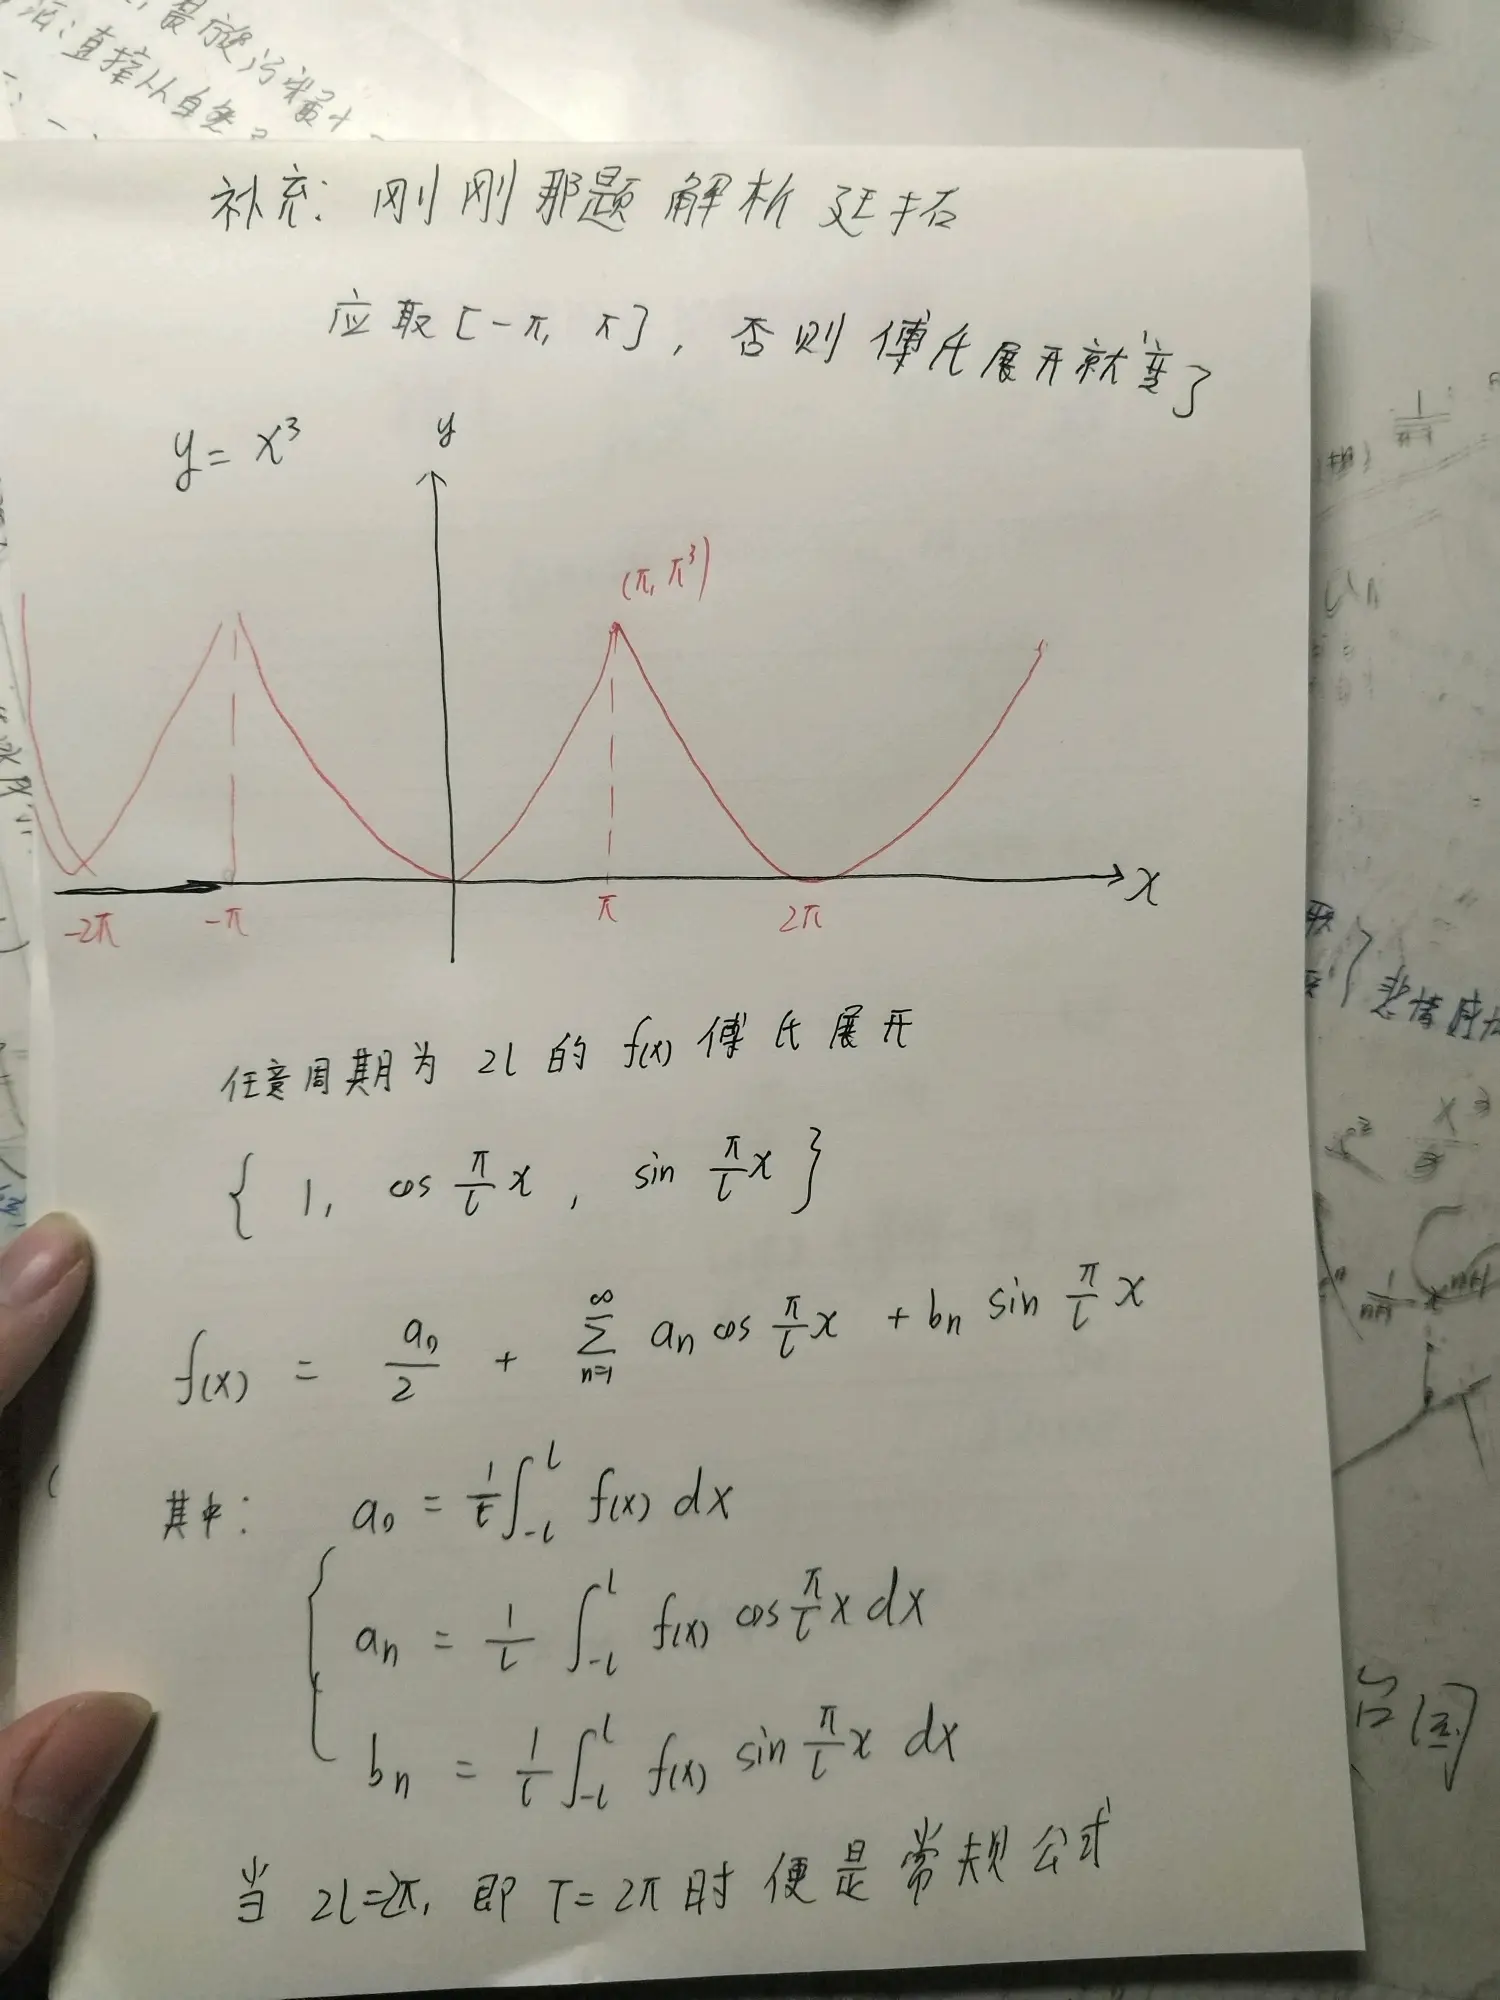 补充: 刚刚那题 解析延拓
应取[-π, π], 否则傅氏展开就变了
y = x³
y
(π, π³)
x
-2π -π π 2π
任意周期为 2l 的 f(x) 傅氏展开
{ 1, cos π/l x , sin π/l x }
f(x) = a₀/2 + ∑_{n=1}^{∞} aₙ cos π/l x + bₙ sin π/l x
其中: a₀ = 1/l ∫_{-l}^{l} f(x) dx
aₙ = 1/l ∫_{-l}^{l} f(x) cos π/l x dx
bₙ = 1/l ∫_{-l}^{l} f(x) sin π/l x dx
当 2l=2π, 即 T=2π 时 便是常规公式
直接从自然
1/n-1
x³